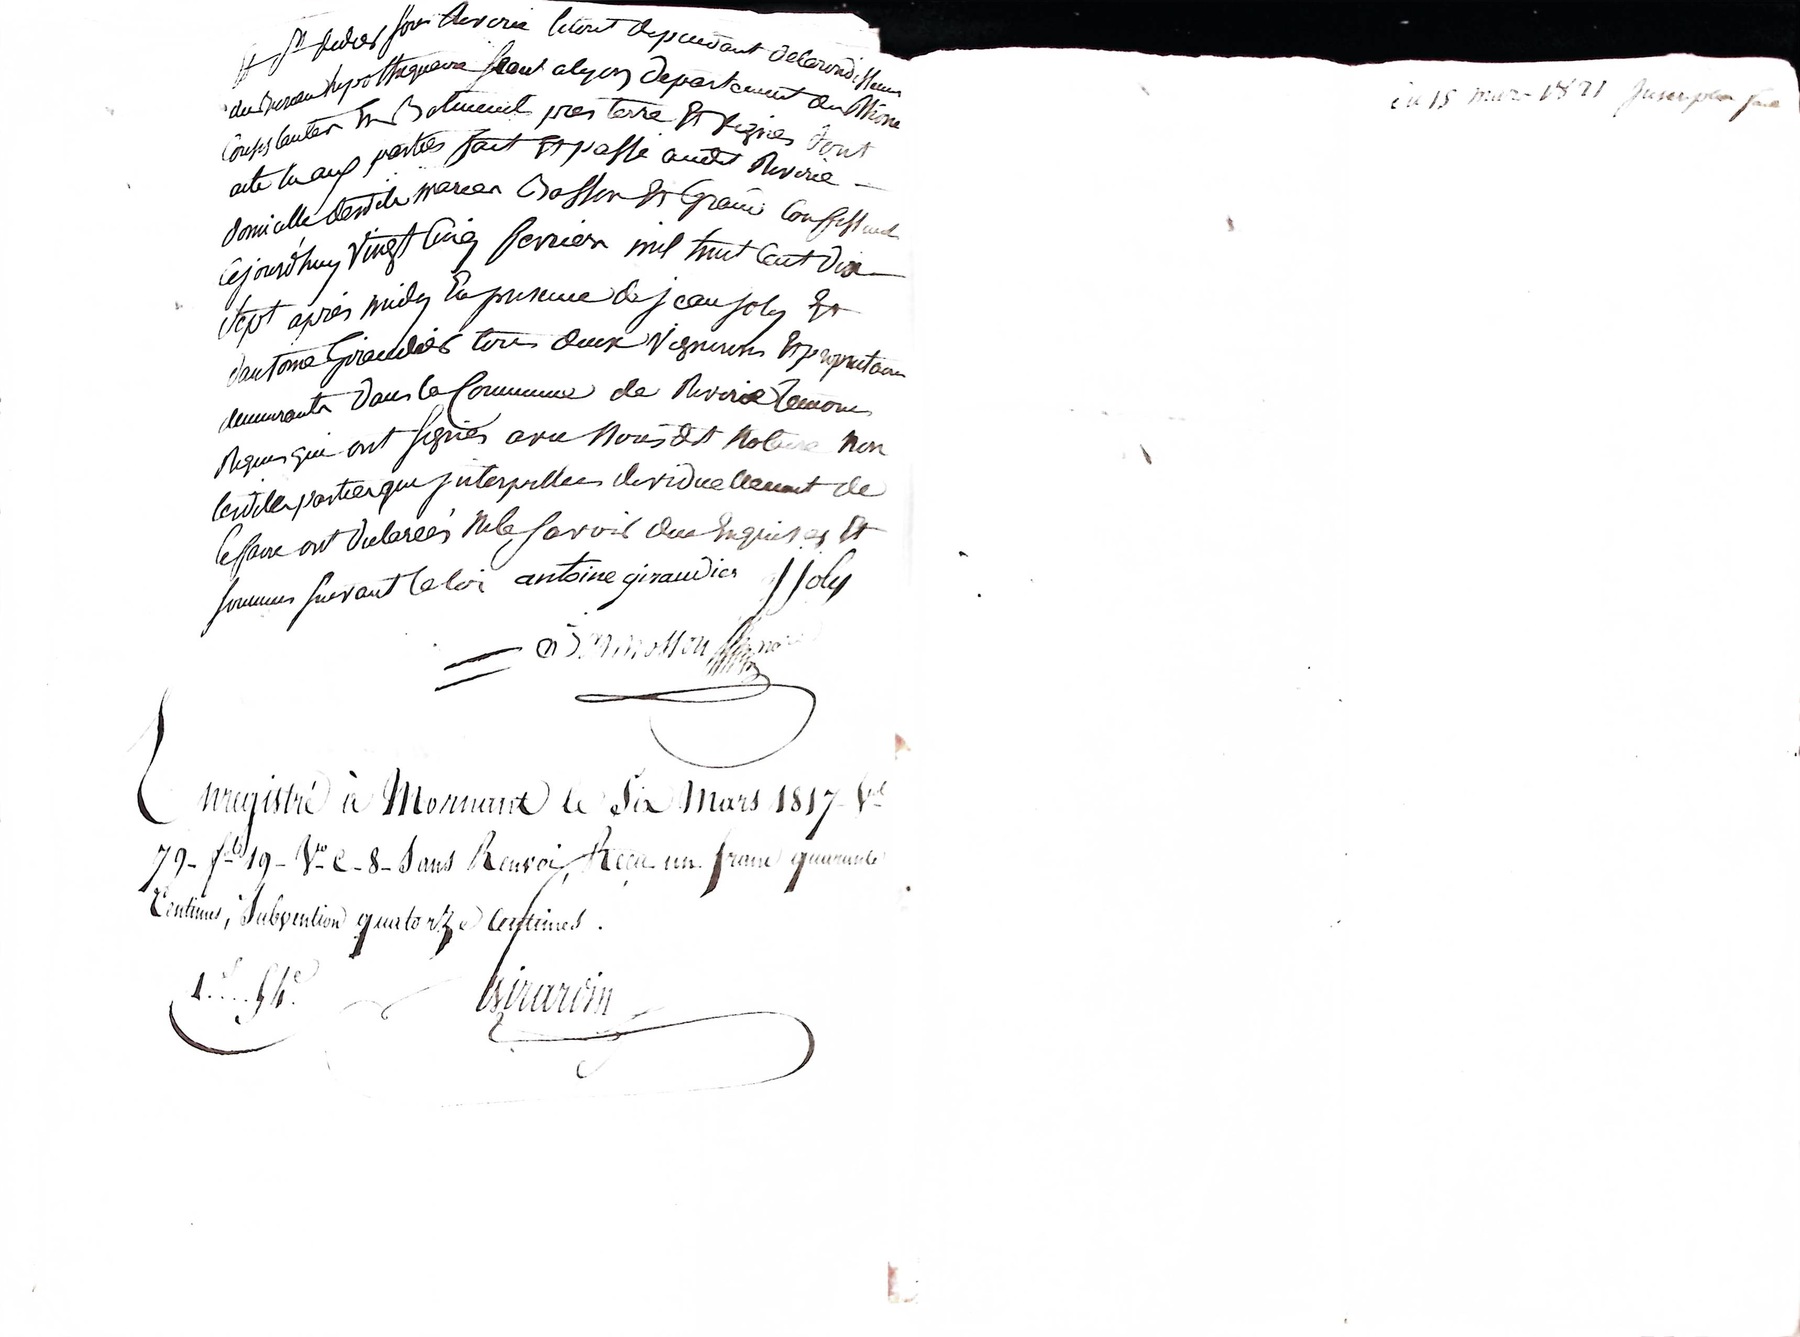 Et St didier sous Riverie letout dependant delarondissement
du Bureau hypothequaire seant alyon departement du Rhône
Consistantes En Batiment pres terre Et vignes Dont
acte lu aux parties fait Et passé audit Riverie —
domicille desdits maries Basson Et
cejourd'huy vingt Cinq fevrier mil huit Cent Dix
sept après midy En presence de jean joly Et
dantoine Giraudier tous deux vignerons Et proprietaires
demeurants Dans la Commune de Riverie temoins
Requis qui ont signés avec Nous dit Notaire Non
lesdites parties que jnterpellees dividuellement de
le faire ont Declareés Nele savoir due Enquises Et
sommes suivant la loi antoine giraudier J Joly
Enregistré à Mornant le Six Mars 1817 Vol
79 - fol 19 - Vo C - 8 - Sans Renvoi, Reçu un franc quarante
Centimes, Subvention quatorze Centimes.
1 f.... 54 c.
Girardin
du 15 mars 1821